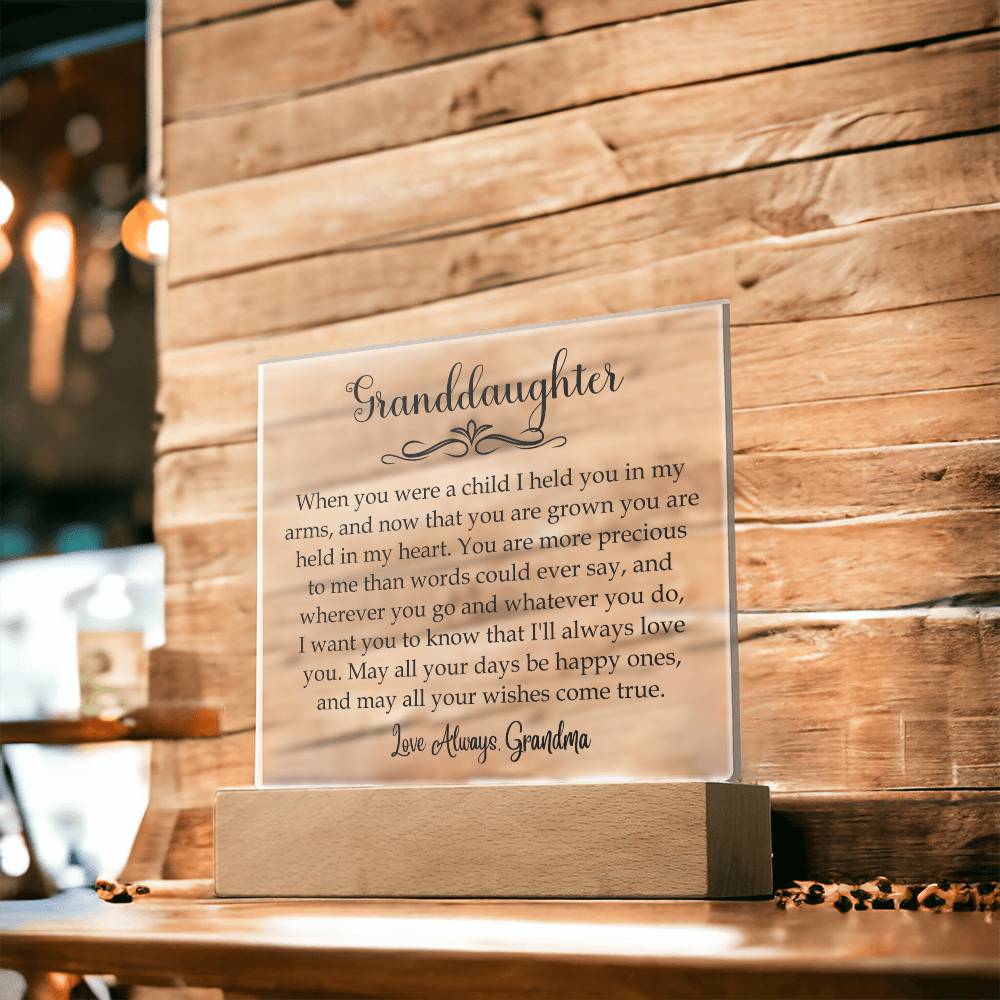 Granddaughter
When you were a child I held you in my
arms, and now that you are grown you are
held in my heart. You are more precious
to me than words could ever say, and
wherever you go and whatever you do,
I want you to know that I'll always love
you. May all your days be happy ones,
and may all your wishes come true.
Love Always, Grandma